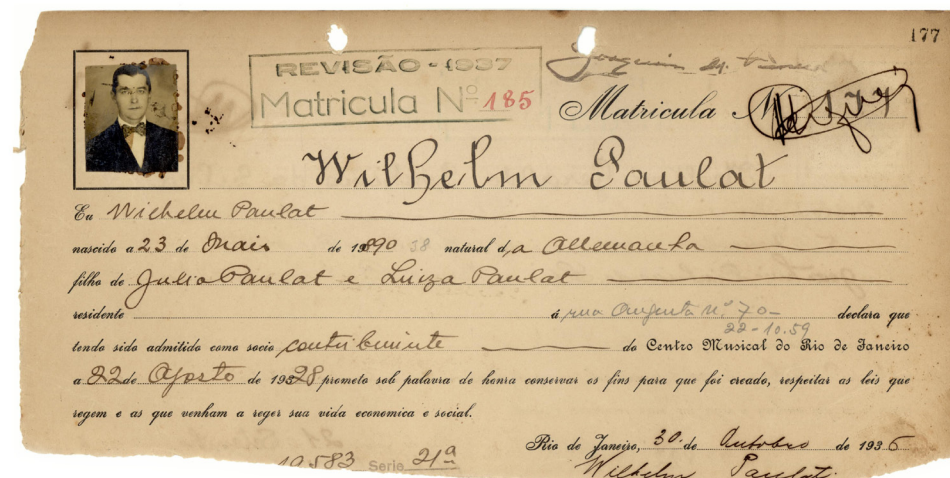 177
REVISÃO - 1937
Matricula Nº 185
Joaquim
Matricula Nº 177
Wilhelm Paulat
Eu Wilhelm Paulat
nascido a 23 de Maio de 1890 38 natural d,a Allemanha
filho de Julio Paulat e Luiza Paulat
residente á rua Augusta nº 70 declara que
22-10.59
tendo sido admitido como socio contribuinte do Centro Musical do Rio de Janeiro
a 22 de Agosto de 1928 prometo sob palavra de honra conservar os fins para que foi creado, respeitar as leis que
regem e as que venham a reger sua vida economica e social.
Rio de Janeiro, 30 de Outubro de 1936
10.583 Serie 21ª
Wilhelm Paulat